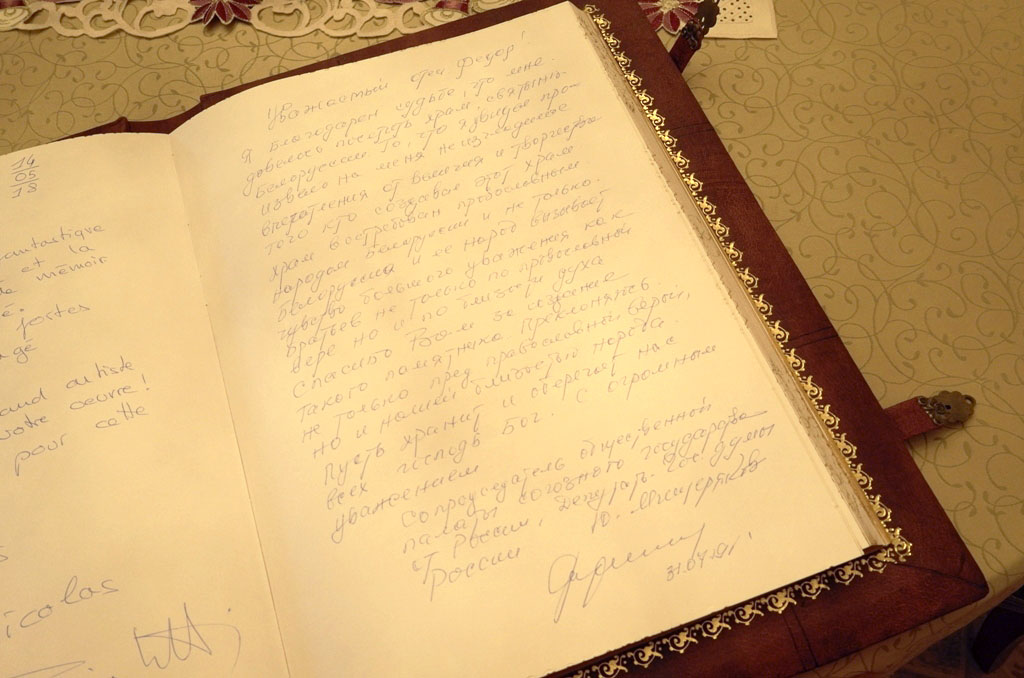 14
05
18
fantastique
et la
mémoire
fortes
grand artiste
votre oeuvre!
pour cette
Nicolas
Уважаемый отец Федор!
Я благодарен судьбе, что мне
довелось посетить храм, святыню
Белоруссии. То, что я увидел про-
извело на меня неизгладимые
впечатления от величия и творчества
того кто создавал этот храм.
Храм востребован православным
народом Белоруссии и не только.
Белоруссия и ее народ вызывает
чувство большого уважения как
братьев не только по православной
вере но и по близости духа
Спасибо Вам за создание
такого памятника преклоняюсь
не только пред православной верой,
но и нашей близостью народа.
Пусть хранит и сбережет нас
всех господь Бог. С огромным
уважением
Сопредседатель общественной
палаты союзного государства
от России, Депутат Гос думы
России Ю.
31.07.